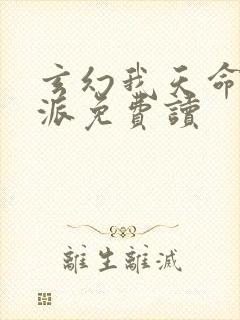 玄幻我天命
派免費讀
離生離滅